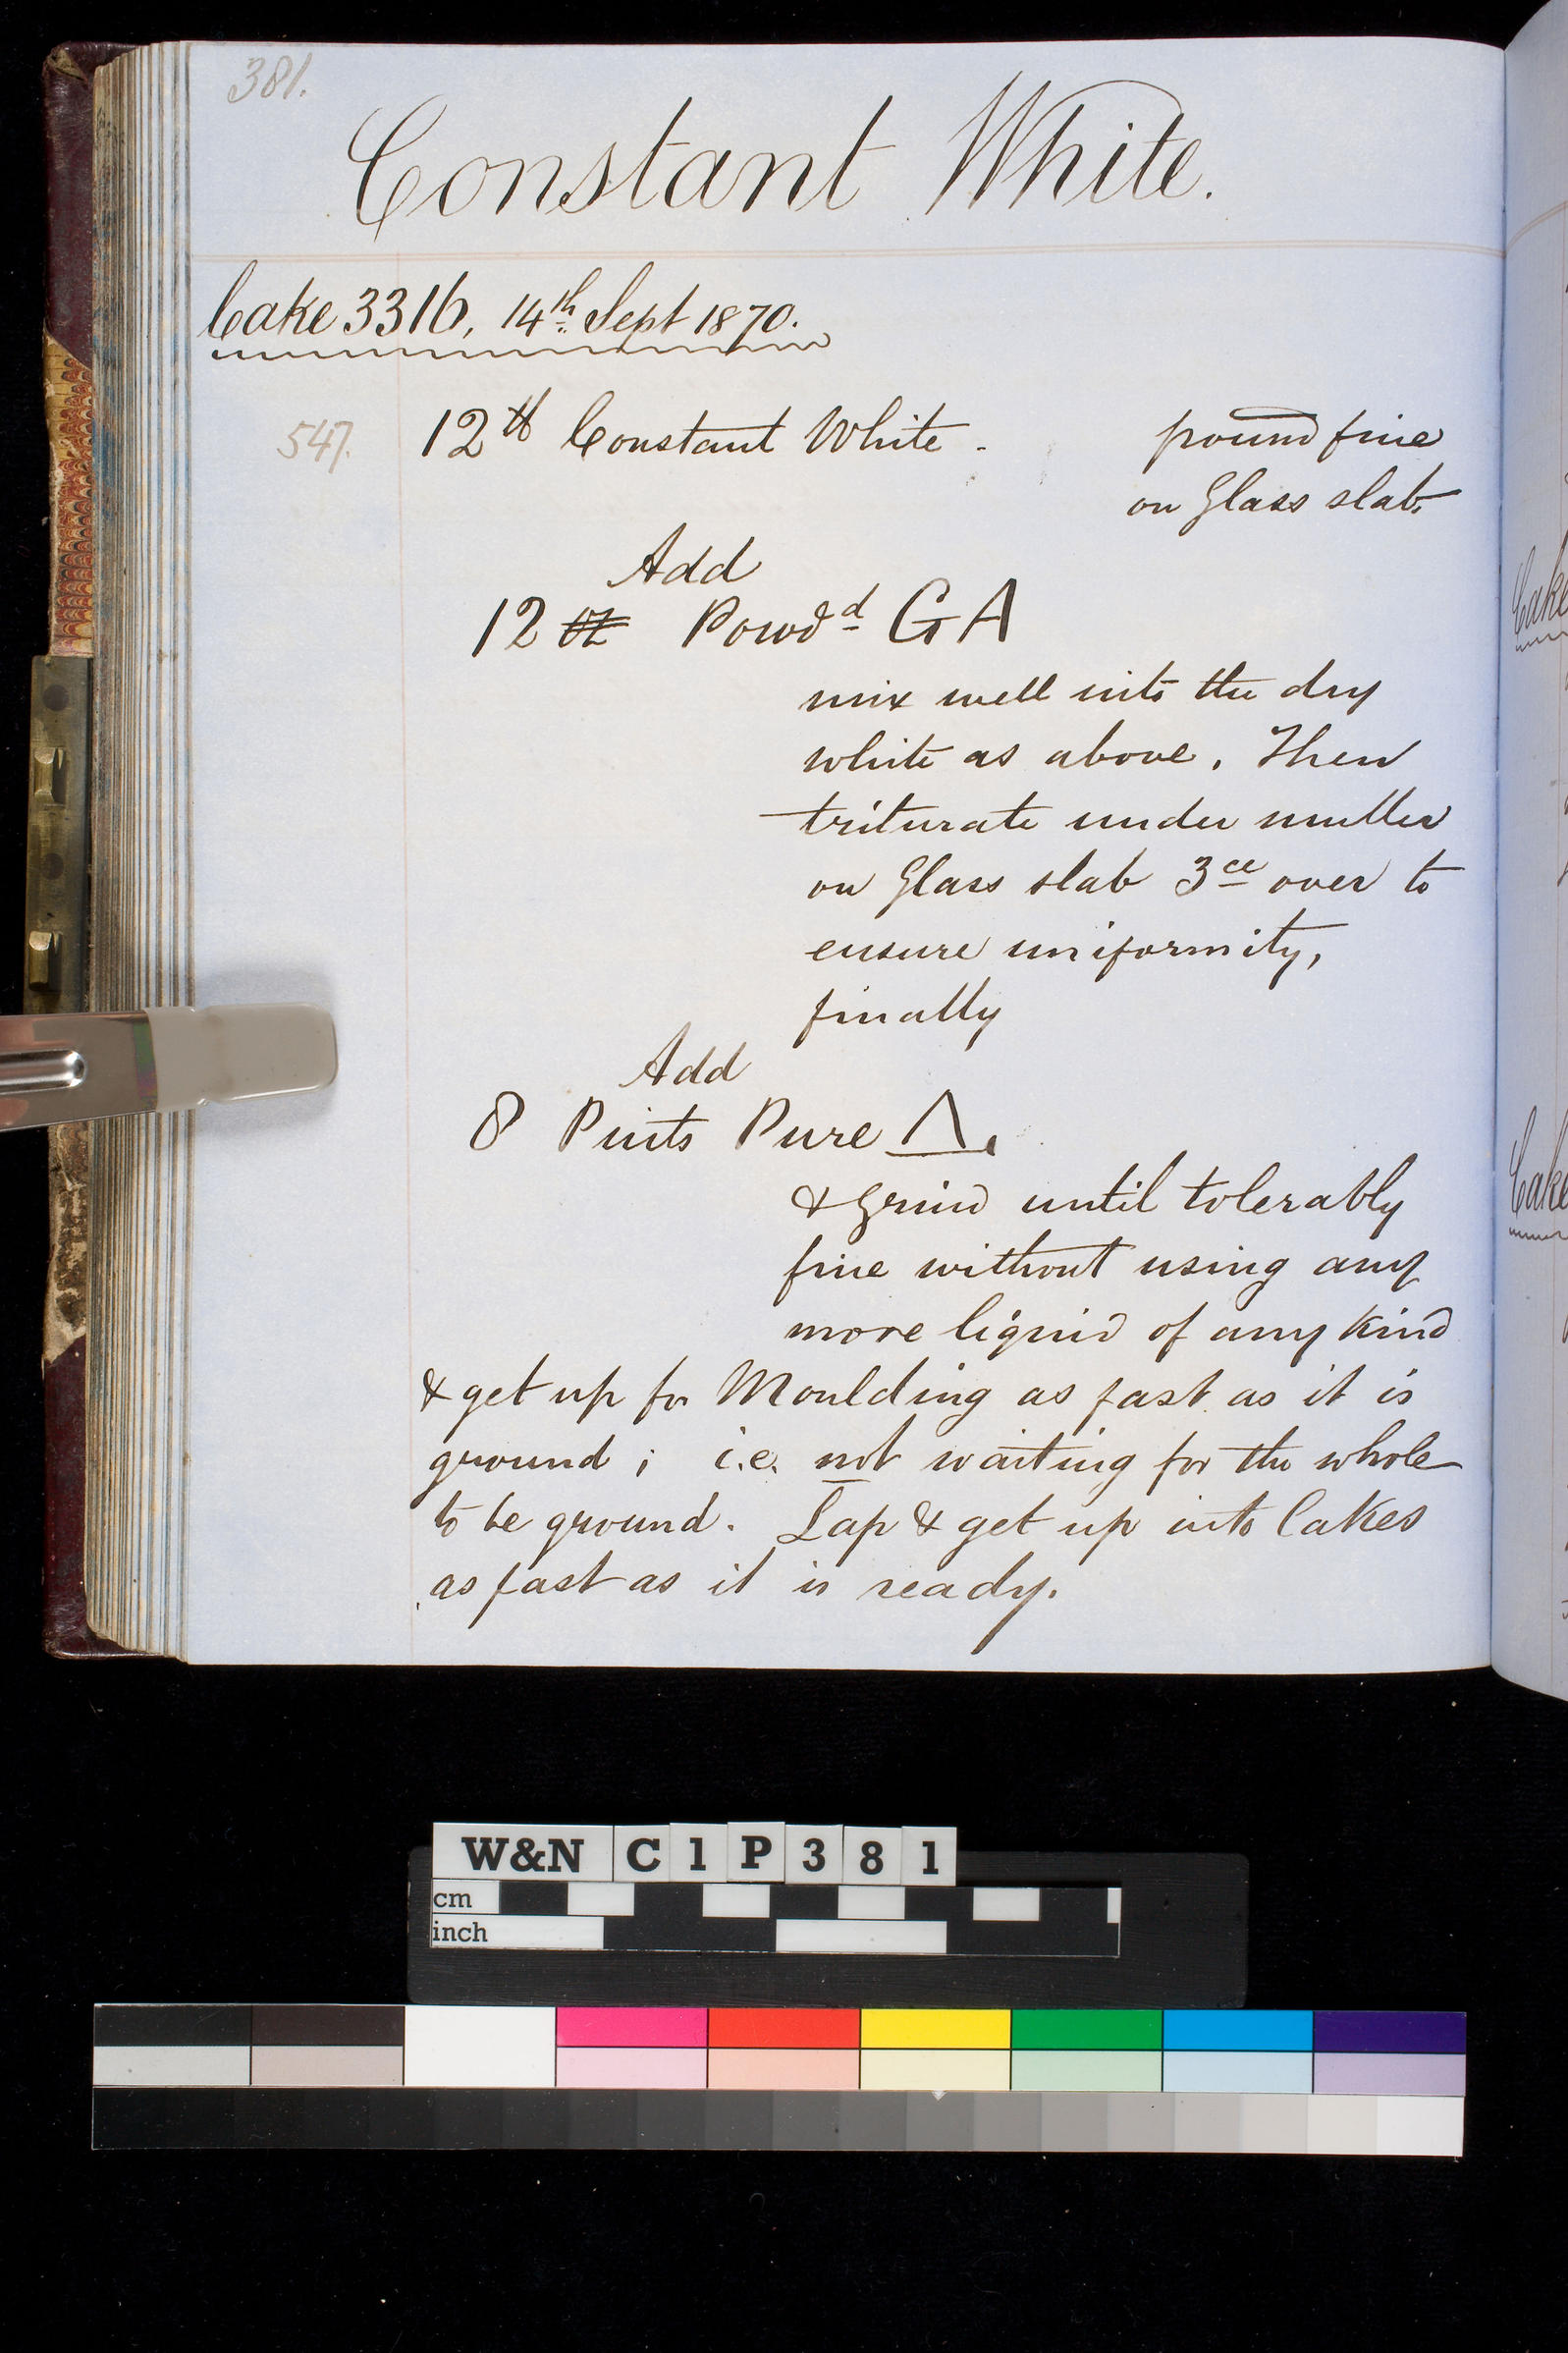 381.
Constant White.
Cake 3316, 14th Sept 1870.
547. 12 ℔ Constant White - pound fine
on Glass slab
Add
12 oz Powdd GA
mix well into the dry
white as above. Then
triturate under muller
on Glass slab 3ce over to
ensure uniformity,
finally
Add
8 Pints Pure △.
& Grind until tolerably
fine without using any
more liquid of any kind
& get up for Moulding as fast as it is
ground; i.e. not waiting for the whole
to be ground. Lap & get up into Cakes
as fast as it is ready.
Cake
Cake
W&N C1P381
cm
inch